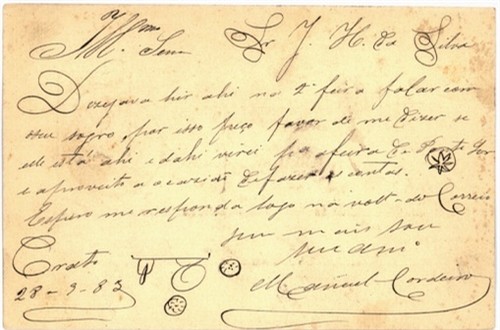 Illmo Senr Dr J. H. da Silva
Dezejava hir ahi na 2ª feira falar com
seu sogro, por isso peço favor de me dizer se
elle esta ahi e dahi virei pª a feira de
e aproveito a ocasião de fazer as contas.
Espero me responda logo na volta do Correio
sem mais sou
seu amº
Crato
28-3-83
Manuel Cordeiro